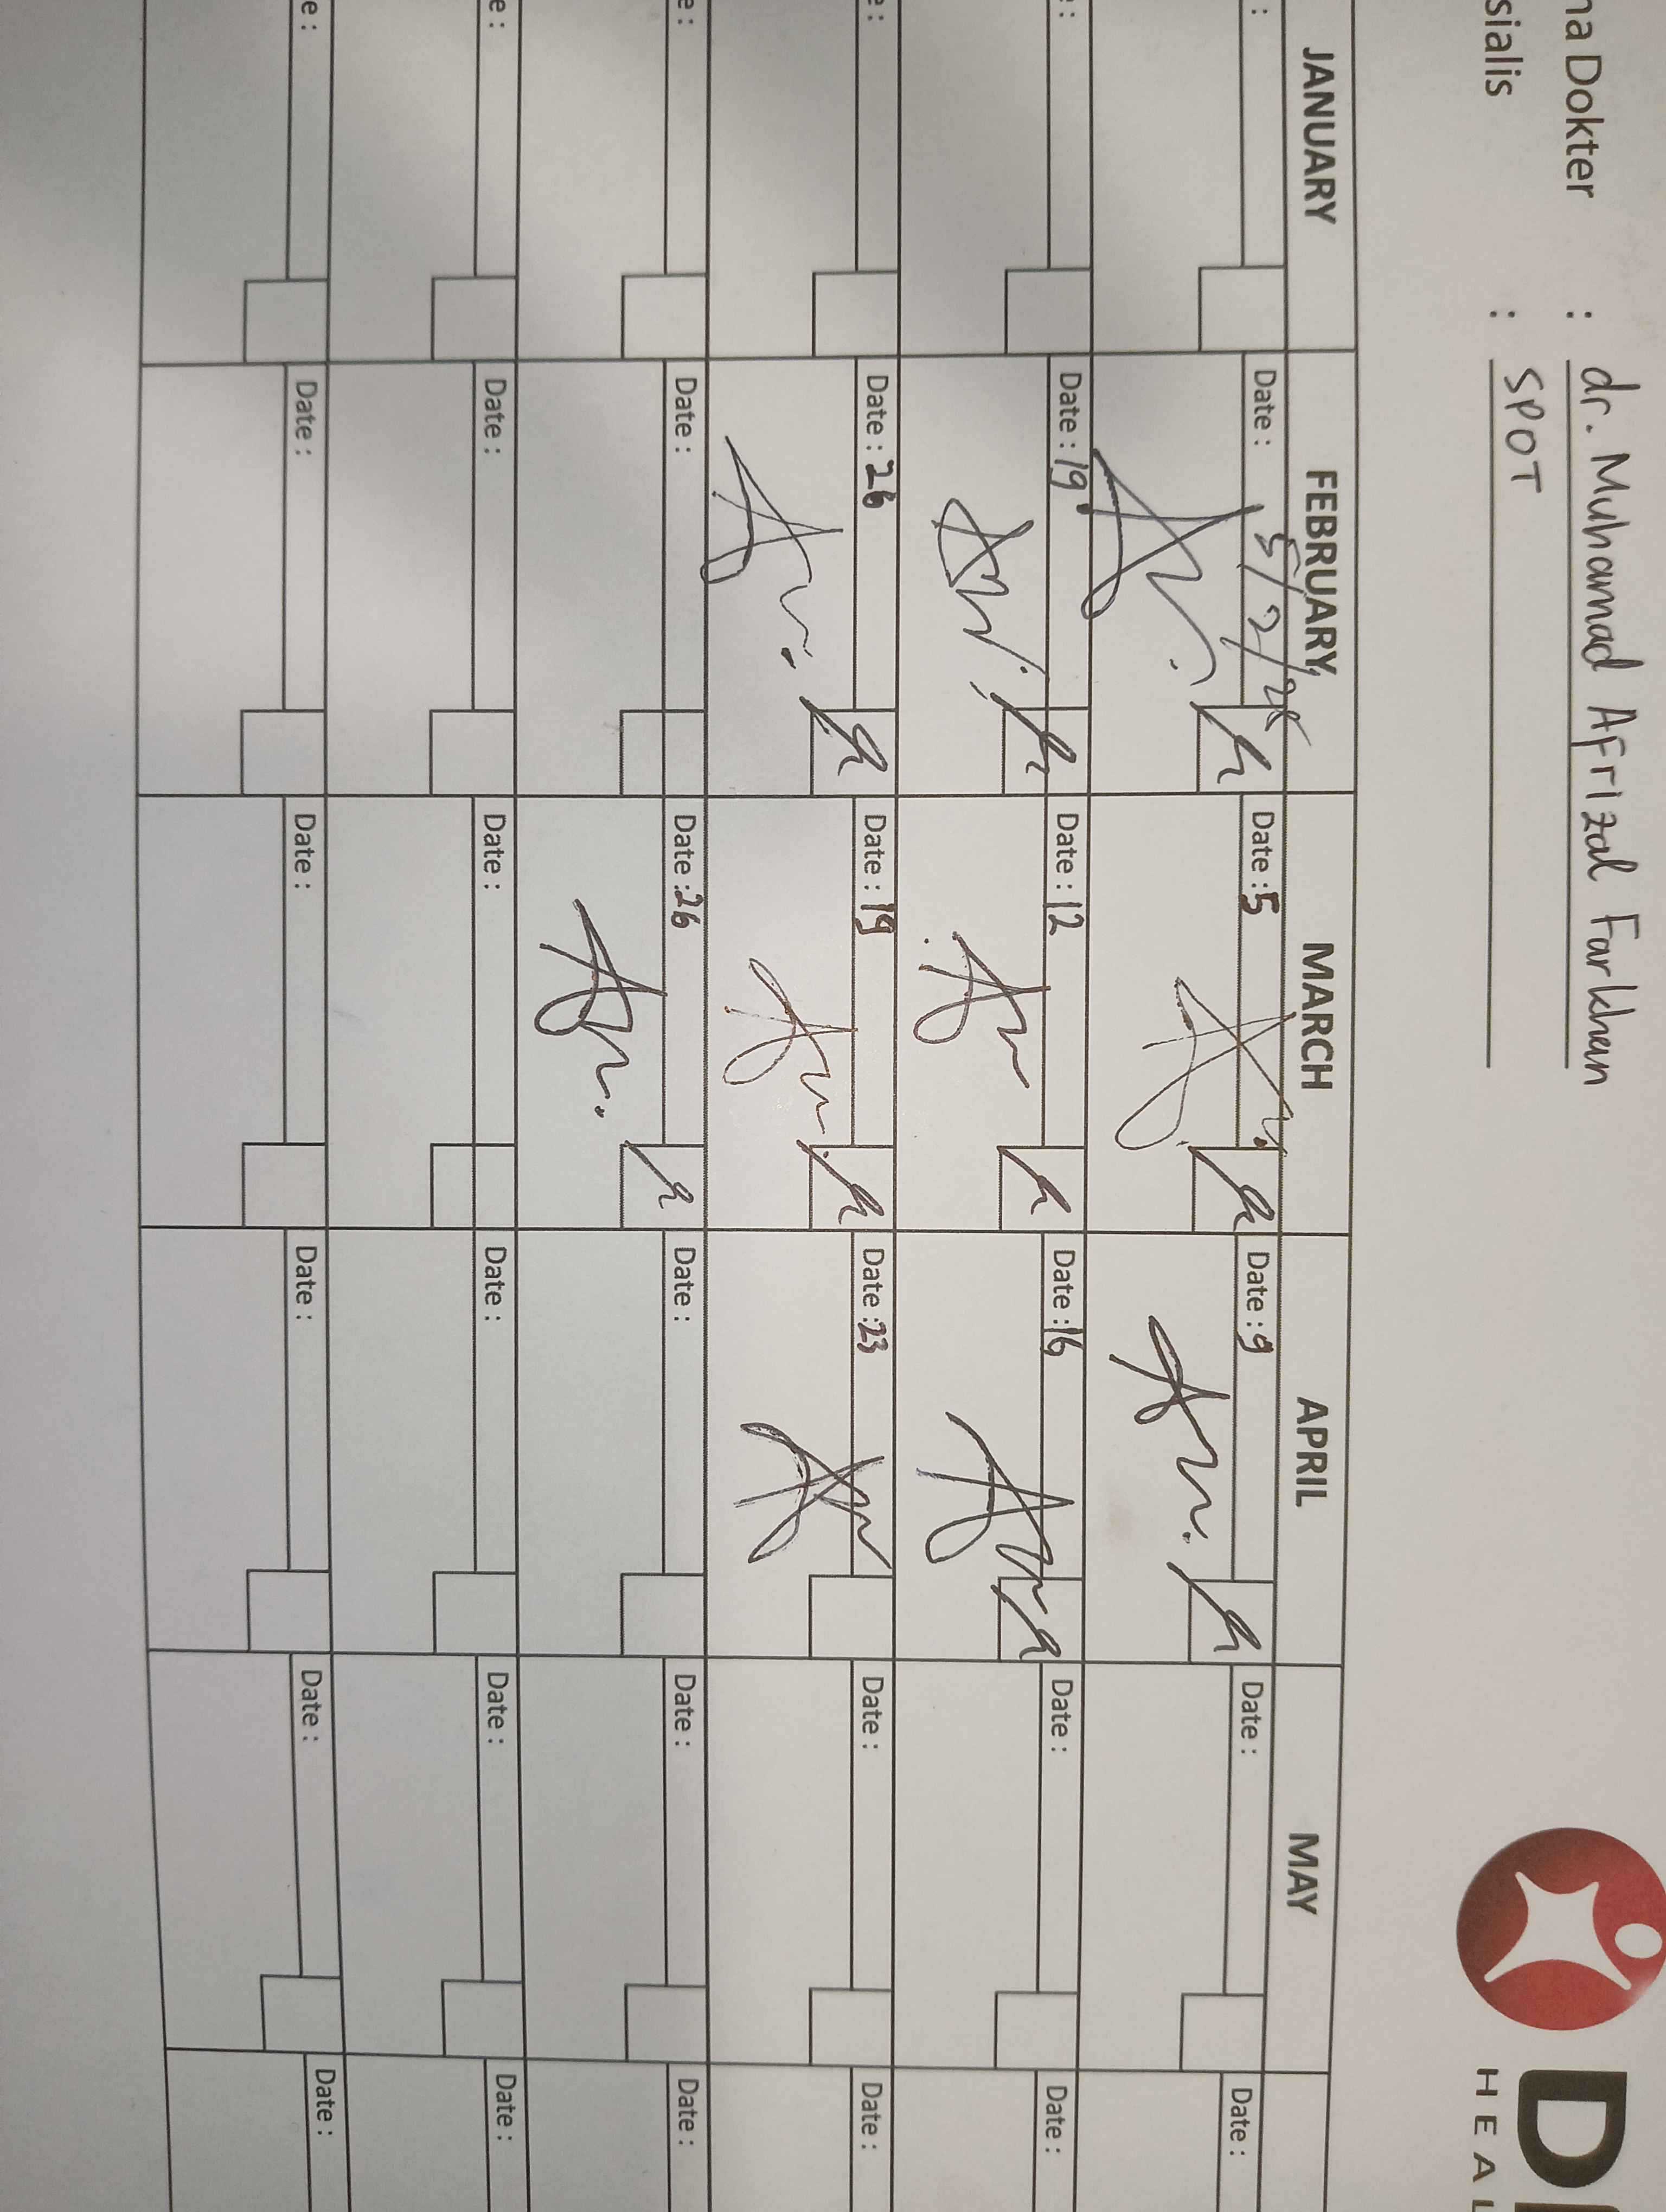 na Dokter : dr. Muhamad Afrizal Farkhan
sialis : SPOT
HEAL
JANUARY FEBRUARY MARCH APRIL MAY
: Date : 5/2/25 Date : 5 Date : 9 Date : Date :
: Date : 19 Date : 12 Date : 16 Date : Date :
e : Date : 26 Date : 19 Date : 23 Date : Date :
e : Date : Date : 26 Date : Date : Date :
e : Date : Date : Date : Date : Date :
e : Date : Date : Date : Date : Date :